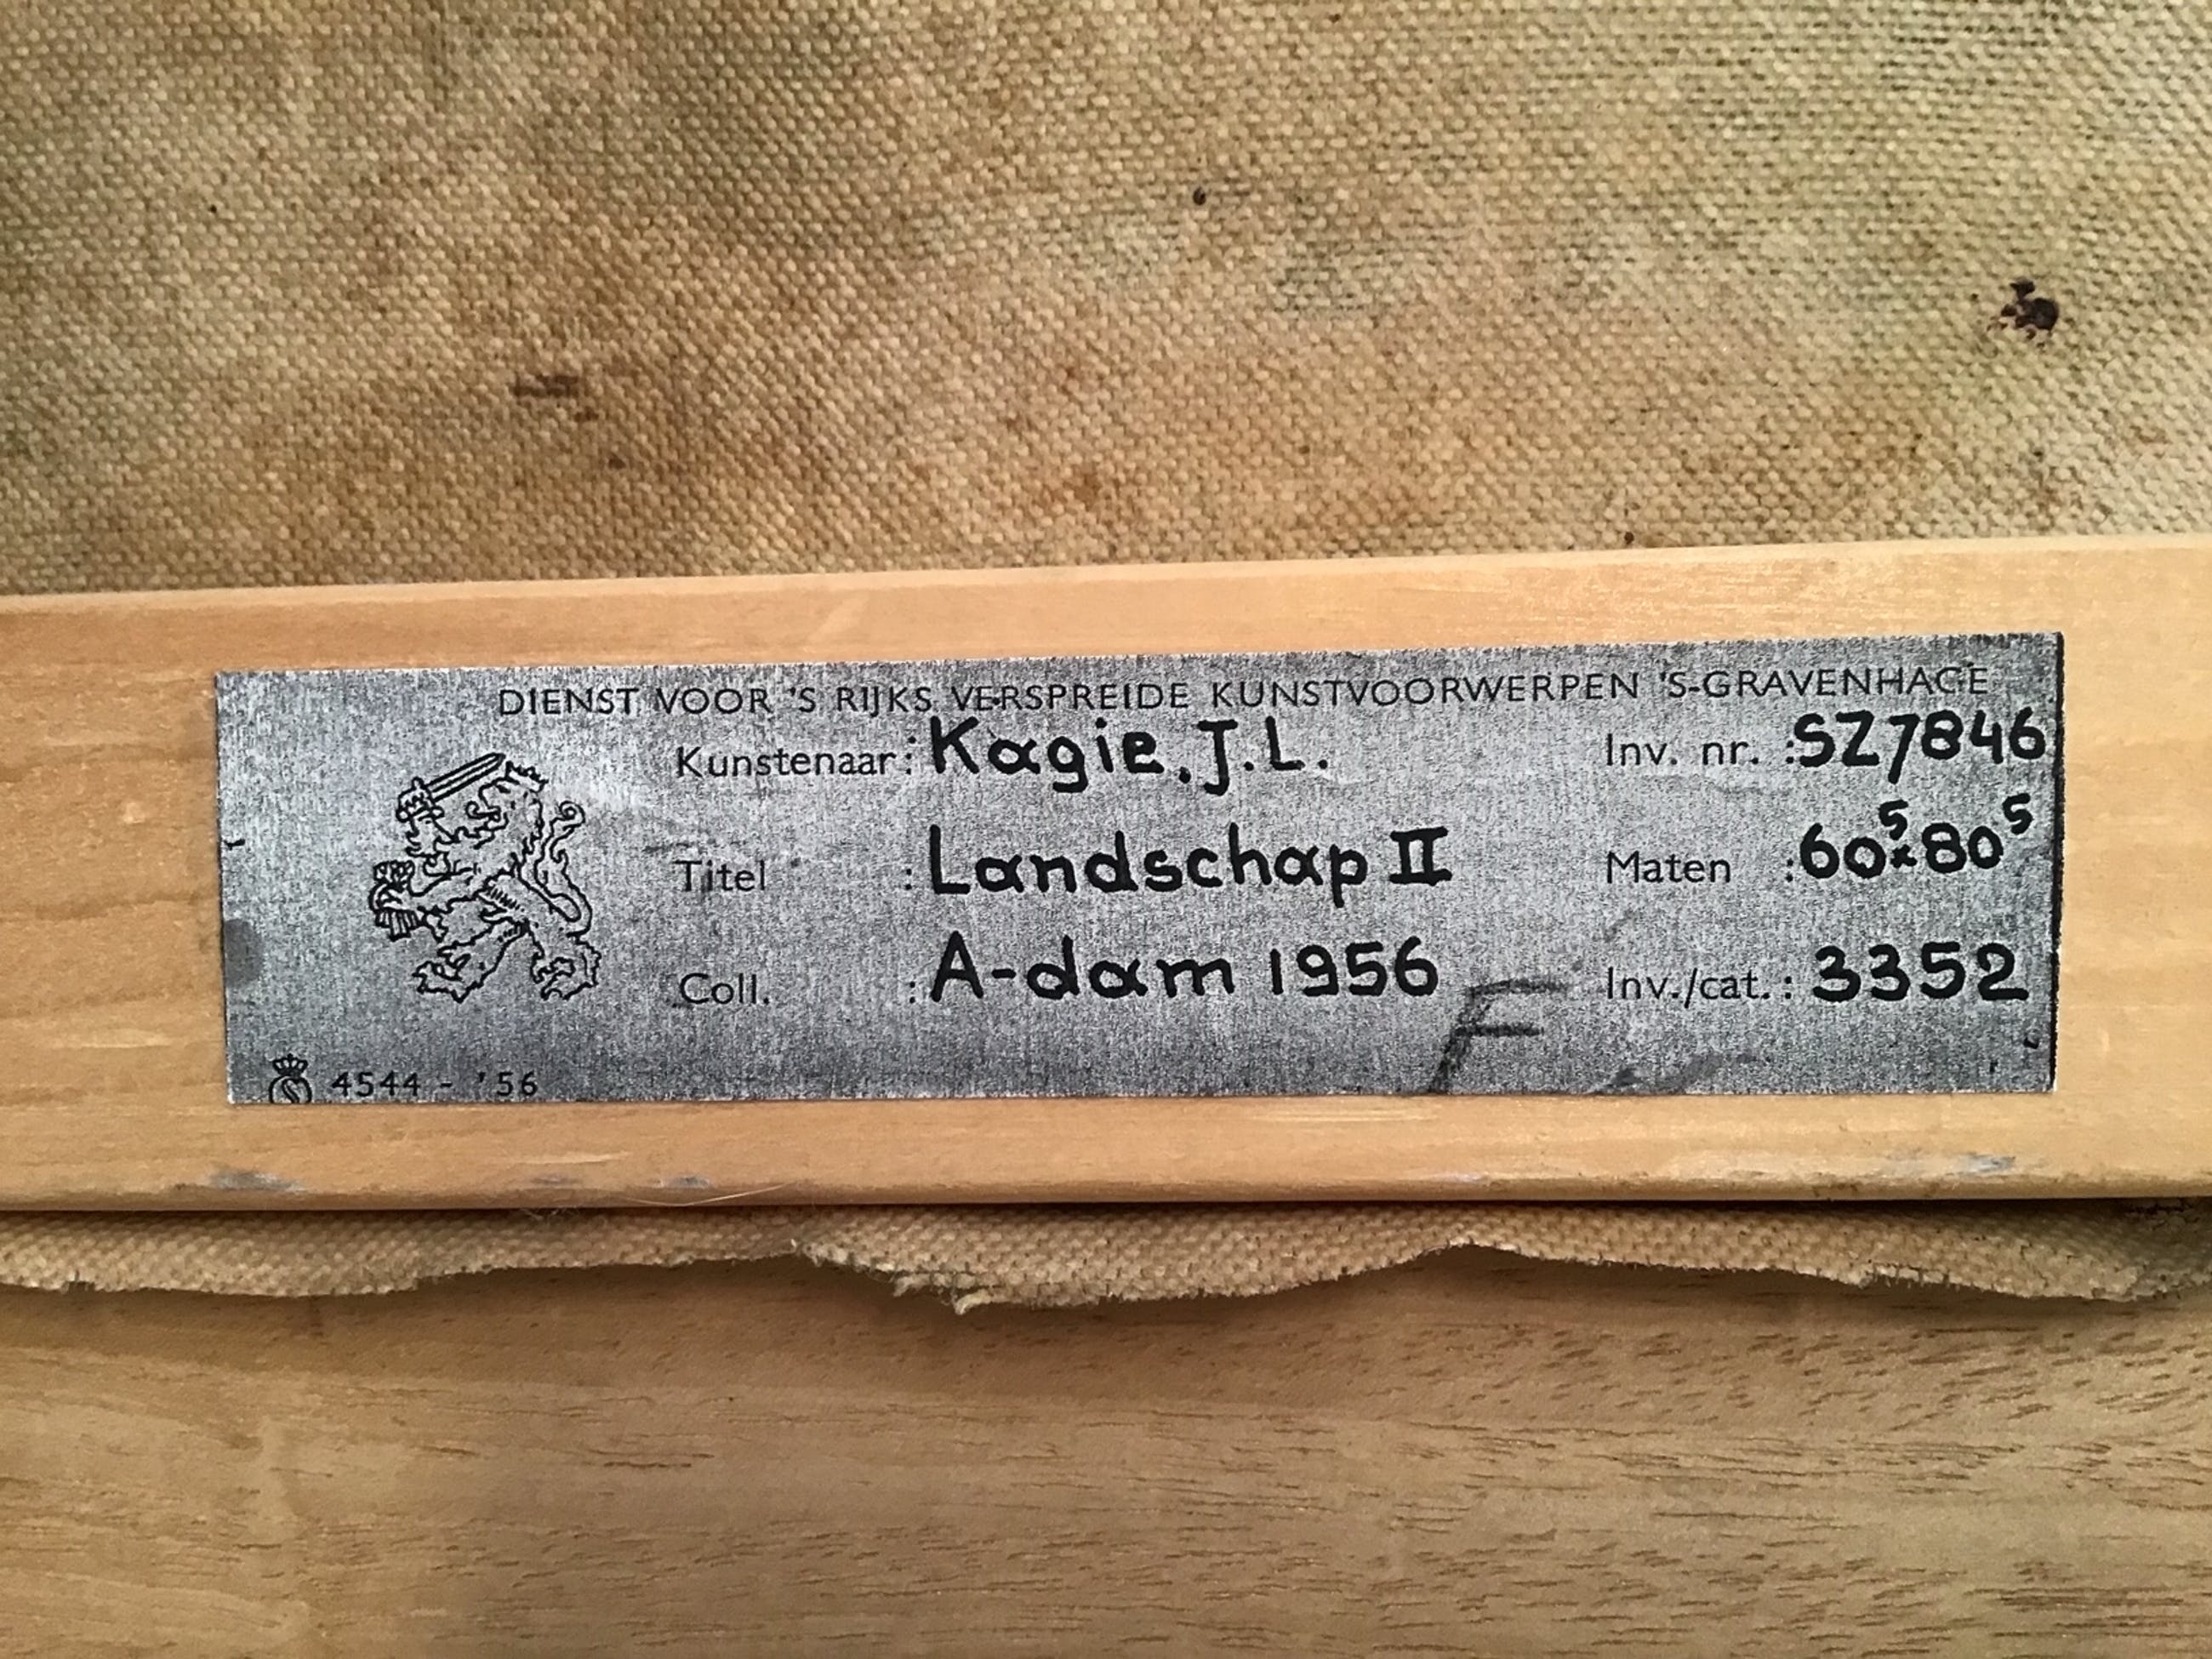 DIENST VOOR 'S RIJKS VERSPREIDE KUNSTVOORWERPEN 'S-GRAVENHAGE
Kunstenaar : Kagie. J.L. Inv. nr. : SZ7846
Titel : Landschap II Maten : 60⁵x80⁵
Coll. : A-dam 1956 Inv./cat. : 3352
F
4544 - '56